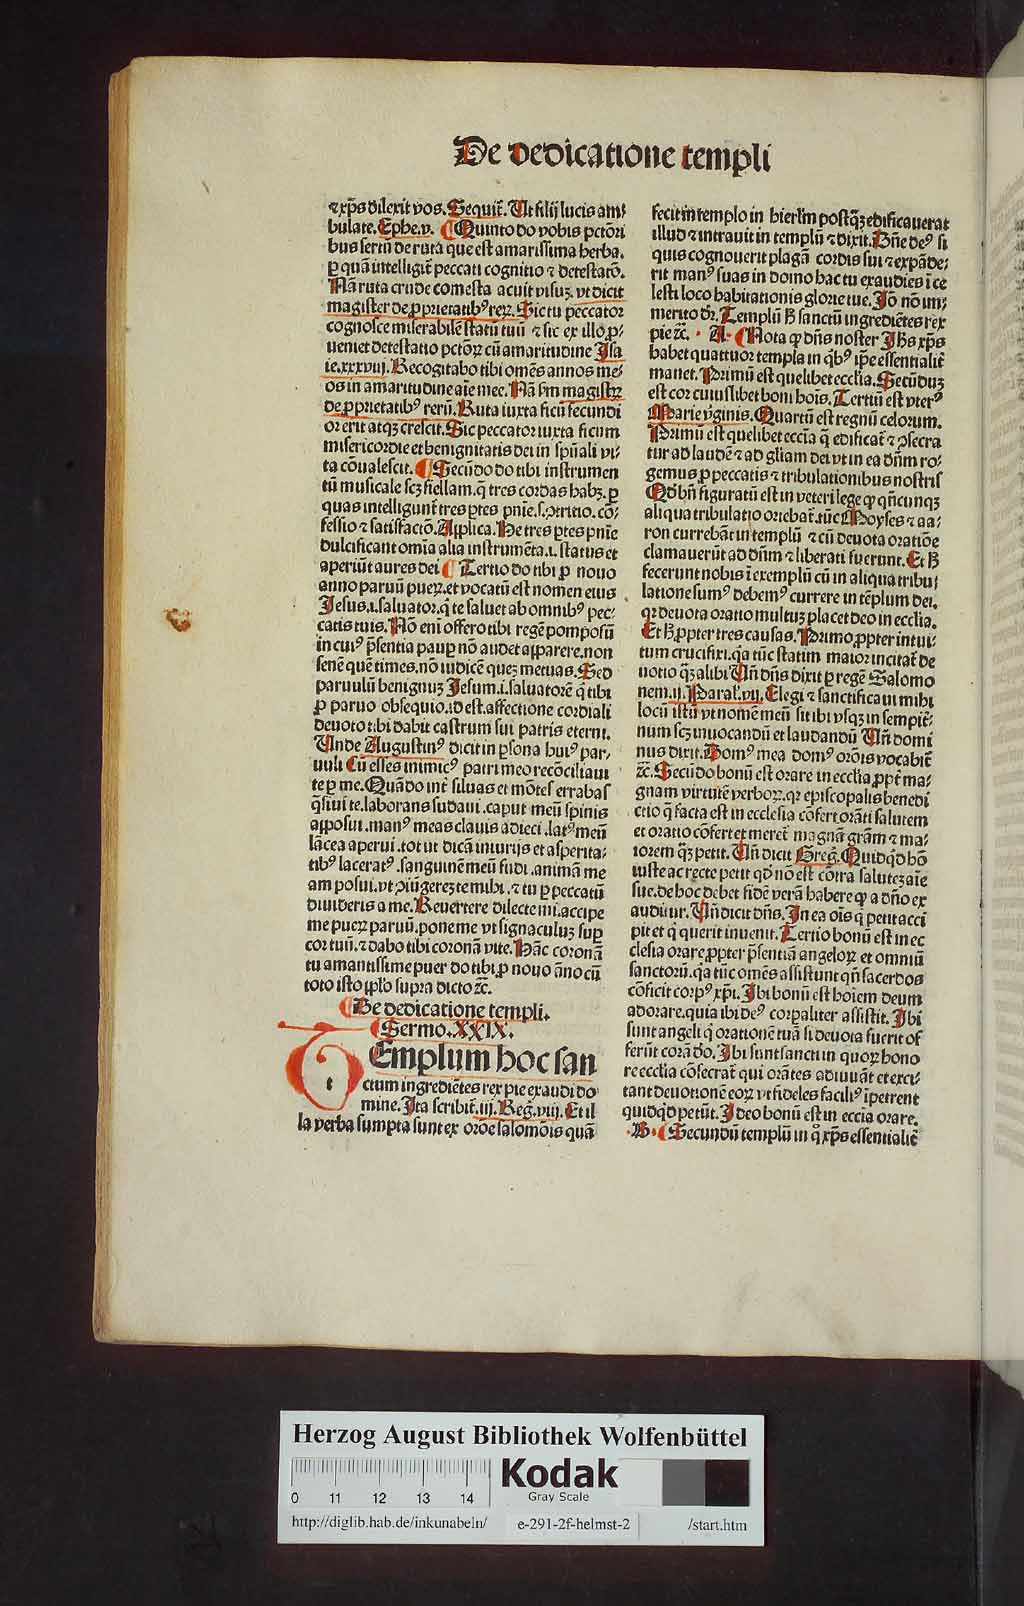 De dedicatione templi
⁊ xp̄s dilexit vos. Sequit̄. Ut filij lucis am⸗
bulate. Ephe. v. ¶ Quinto do vobis pctōri
bus sertū de ruta que est amarissima herba.
ꝑ quā intelligit̄ peccati cognitio ⁊ detestatō.
Nā ruta crude comesta acuit visuꝫ. vt dicit
magister de ꝓprietatibꝰ reꝝ. Sic tu peccator
cognosce miserabilē statū tuū ⁊ sic ex illo ꝓ⸗
ueniet detestatio pctōꝝ cū amaritudine Isa
ie. xxxviij. Recogitabo tibi omēs annos me⸗
os in amaritudine aīe mee. Nā sm magistꝝ
de ꝓprietatibꝰ rerū. Ruta iuxta ficū fecundi
or erit atqꝫ crescit. Sic peccator iuxta ficum
misericordie et benignitatis dei in spūali vi⸗
ta cōualescit. ¶ Secūdo do tibi instrumen
tū musicale scꝫ fiellam. q̄ tres cordas habꝫ. ꝑ
quas intelligunt̄ tres ꝑtes pnīe. s. ꝯtritio. cō⸗
fessio ⁊ satisfactō. Applica. He tres ꝑtes pnīe
dulcificant omīa alia instrumēta. i. status et
aperiūt aures dei ¶ Tertio do tibi ꝓ nouo
anno paruū pueꝝ. et vocatū est nomen eius
Jesus. i. saluator. q̄ te saluet ab omnibꝰ pec⸗
catis tuis. Nō eni offero tibi regē pomposū
in cuiꝰ p̄sentia paup̄ nō audet apparere. non
senē quē times. nō iudicē queꝫ metuas. Sed
paruulū benignuꝫ Jesum. i. saluatorē q̄ tibi
ꝓ paruo obsequio. id est. affectione cordiali
deuoto tibi dabit castrum sui patris eterni.
Unde Augustinꝰ dicit in ꝑsona huiꝰ par⸗
uuli Cū esses inimicꝰ patri meo recōciliaui
te ꝑ me. Quādo int̄ siluas et mōtes errabas
q̄siui te. laborans sudaui. caput meū spinis
apposui. manꝰ meas clauis adieci. latꝰ meū
lācea aperui. tot vt dicā iniurijs et asperita⸗
tibꝰ laceratꝰ. sanguinē meū fudi. animā me
am posui. vt ꝯiūgereꝫ te mihi. ⁊ tu ꝑ peccatū
diuideris a me. Reuertere dilecte mi. accipe
me pueꝝ paruū. pone me vt signaculuꝫ sup̄
cor tuū. ⁊ dabo tibi coronā vite. Hāc coronā
tu amantissime puer do tibi ꝓ nouo āno cū
toto isto ip̄lo supra dicto ⁊c̄.
¶ De dedicatione templi.
¶ Sermo. XXIX.
TEmplum hoc san
ctum ingrediētes rex pie exaudi do
mine. Ita scribit̄. iij. Reg. viij. Et il
la verba sumpta sunt ex orōe salomōis quā
fecit in templo in hierlm̄ postqꝫ edificauerat
illud ⁊ intrauit in templū ⁊ dixit. Dn̄e deꝰ si
quis cognouerit plagā cordis sui ⁊ expāde⸗
rit manꝰ suas in domo hac tu exaudies ī ce
lesti loco habitationis glorie tue. Iō nō im⸗
merito dr̄. Templū ꝭ sanctū ingrediētes rex
pie ⁊c̄. · A · ¶ Nota ꝙ dn̄s noster Jhs xp̄s
habet quattuor templa in q̄bꝰ ip̄e essentialit̄
manet. Primū est quelibet ecclīa. Secūduꝫ
est cor cuiuslibet boni hoīs. Tertiū est vterꝰ
Marie v̄ginis. Quartū est regnū celorum.
Primū est quelibet eccīa q̄ edificat̄ ⁊ ꝯsecra
tur ad laudē ⁊ ad gliam dei vt in ea dn̄m ro⸗
gemus ꝓ peccatis ⁊ tribulationibus nostris
Qd̄ bn̄ figuratū est in veteri lege ꝙ qn̄cunqꝫ
aliqua tribulatio oriebat̄. tūc Moyses ⁊ aa⸗
ron currebāt in templū ⁊ cū deuota oratiōe
clamauerūt ad dn̄m ⁊ liberati fuerunt. Et ꝭ
fecerunt nobis ī exemplū cū in aliqua tribu⸗
latione sumꝰ debemꝰ currere in tēplum dei.
qꝛ deuota oratio multuꝫ placet deo in ecclīa.
Et ꝭ ꝓpter tres causas. Primo ꝓpter intui⸗
tum crucifixi. q̄a tūc statim maior incitat̄ de
uotio qꝫ alibi Un̄ dn̄s dixit ꝑ regē Salomo
nem. ij. Paral. vij. Elegi ⁊ sanctificaui mihi
locū istū vt nomē meū sit ibi vsqꝫ in sempit̄⸗
num scꝫ inuocandū et laudandū Un̄ domi
nus dixit. Domꝰ mea domꝰ orōis vocabit̄
⁊c̄. Secūdo bonū est orare in ecclīa ꝓpt̄ ma⸗
gnam virtutē verboꝝ. qꝛ episcopalis benedi
ctio q̄ facta est in ecclesia cōfert orāti salutem
et oratio cōfert et meret̄ magnā grām ⁊ ma⸗
iorem qꝫ petit. Un̄ dicit Greg. Quidqd̄ hō
iuste ac recte petit qd̄ nō est cōtra saluteꝫ aīe
sue. de hoc debet fidē verā habere ꝙ a dn̄o ex
auditur. Un̄ dicit dn̄s. In ea oīs q̄ petit acci
pit et q̄ querit inuenit. Tertio bonū est in ec
clesia orare ꝓpter p̄sentiā angeloꝝ et omniū
sanctorū. q̄a tūc omēs assistunt qn̄ sacerdos
cōficit corpꝰ xp̄i. Ibi bonū est hoīem deum
adorare. quia ibi deꝰ corꝑaliter assistit. Ibi
sunt angeli q̄ orationē tuā si deuota fuerit of
ferūt corā dō. Ibi sunt sancti in quoꝝ hono
re ecclīa cōsecrat̄ qui orātes adiuuāt et exci⸗
tant deuotionē eoꝝ vt fideles faciliꝰ īpetrent
quidqd̄ petūt. Ideo bonū est in eccīa orare.
· B · ¶ Secundū templū in q̊ xp̄s essentialit̄
Herzog August Bibliothek Wolfenbüttel
0 11 12 13 14
Kodak
Gray Scale
http://diglib.hab.de/inkunabeln/ e-291-2f-helmst-2 /start.htm